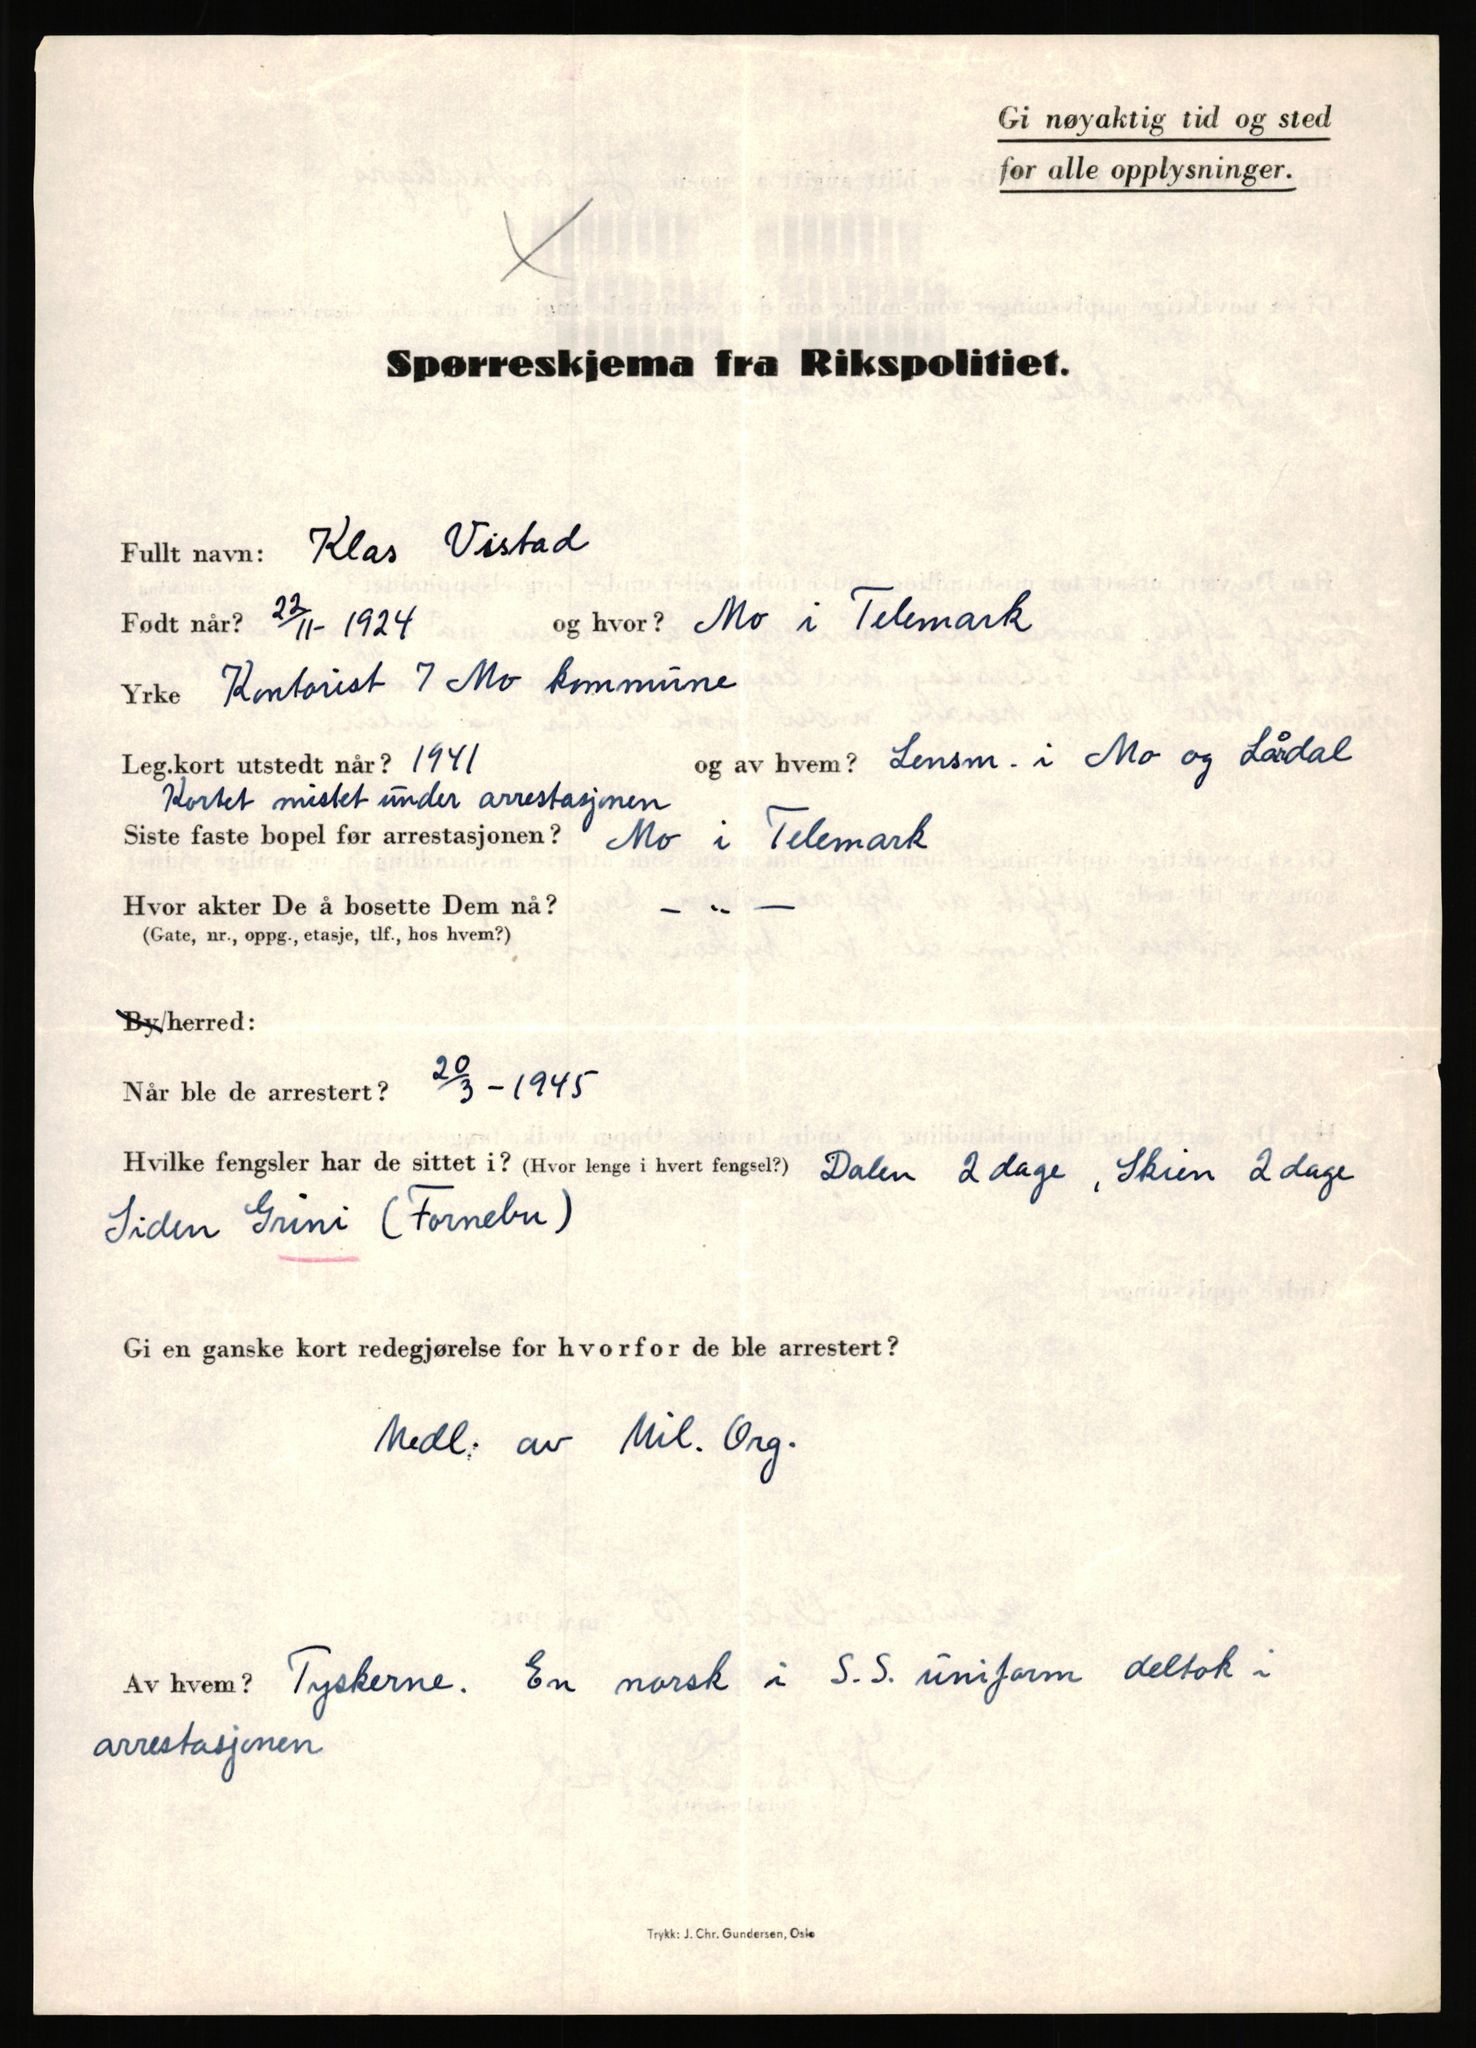 Gi nøyaktig tid og sted
for alle opplysninger.
Spørreskjema fra Rikspolitiet.
Fullt navn: Klas Vistad
Født når? 22/11- 1924 og hvor? Mo i Telemark
Yrke Kontorist 7 Mo kommune
Leg.kort utstedt når? 1941 og av hvem? Lensm. i Mo og Lårdal
Kortet mistet under arrestasjonen
Siste faste bopel før arrestasjonen? Mo i Telemark
Hvor akter De å bosette Dem nå? — " —
(Gate, nr., oppg., etasje, tlf., hos hvem?)
By/herred:
Når ble de arrestert? 20/3 - 1945
Hvilke fengsler har de sittet i? (Hvor lenge i hvert fengsel?) Dalen 2 dage, Skien 2 dage
Siden Grini (Fornebu)
Gi en ganske kort redegjørelse for hvorfor de ble arrestert?
Medl. av Mil. Org.
Av hvem? Tyskerne. En norsk i S.S. uniform deltok i
arrestasjonen
Trykk: J. Chr. Gundersen, Oslo